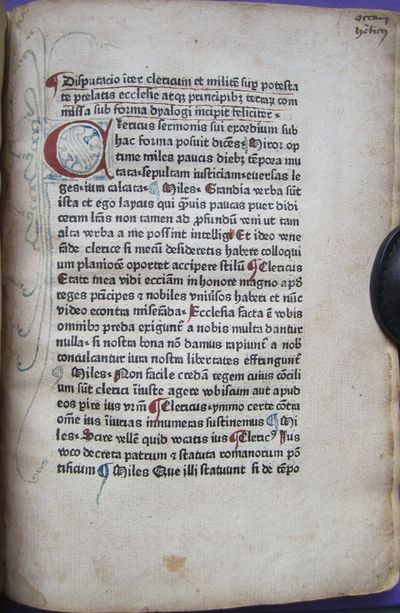 Occam
hēticꝰ
Disputacio īter clericum et militē suꝑ potesta
te prelatis ecclesie atqꝫ principibꝫ terraꝝ com
missa sub forma dyalogi incipit feliciter·
Clericus sermonis sui exordium sub
hac forma posuit dicēs· Miror op
time miles paucis diebꝫ tēpora mu
tata· sepultam iusticiam· euersas le
ges· iura calcata· Miles· Grandia verba sūt
ista et ego laycus qui quis paucas puer didi
cerim lr̄as non tamen ad ꝓfundū veni ut tam
alta verba a me possint intelligi Et ideo vene
rāde clerice si mecū desideretis habere colloqui
um planiorē oportet accipere stilū Clericus
Etate mea vidi eccīam in honore magno apd̓
reges prīcipes ⁊ nobiles vniūsos haberi et nūc
video econtra miserāda· Ecclesia facta ē vobis
omnibꝰ preda exigunt̄ a nobis multa dantur
nulla· si nostra bona nō damus rapiunt̄ a nob̓
conculcantur iura nostra libertates effringunt̄
Miles· Non facile credā regem cuius cōcili
um sūt clerici īiuste agere vobiscum aut apud
eos ꝑire ius vr̄m Clericus· ymmo certe cōtra
om̄e ius īiurias innumeras sustinemus Mi
les· Scire vellē quid vocatis ius Clericꝰ Ius
voco decreta patrum ⁊ statuta romanorum pō
tificum Miles Que illi statuunt si de tēpo